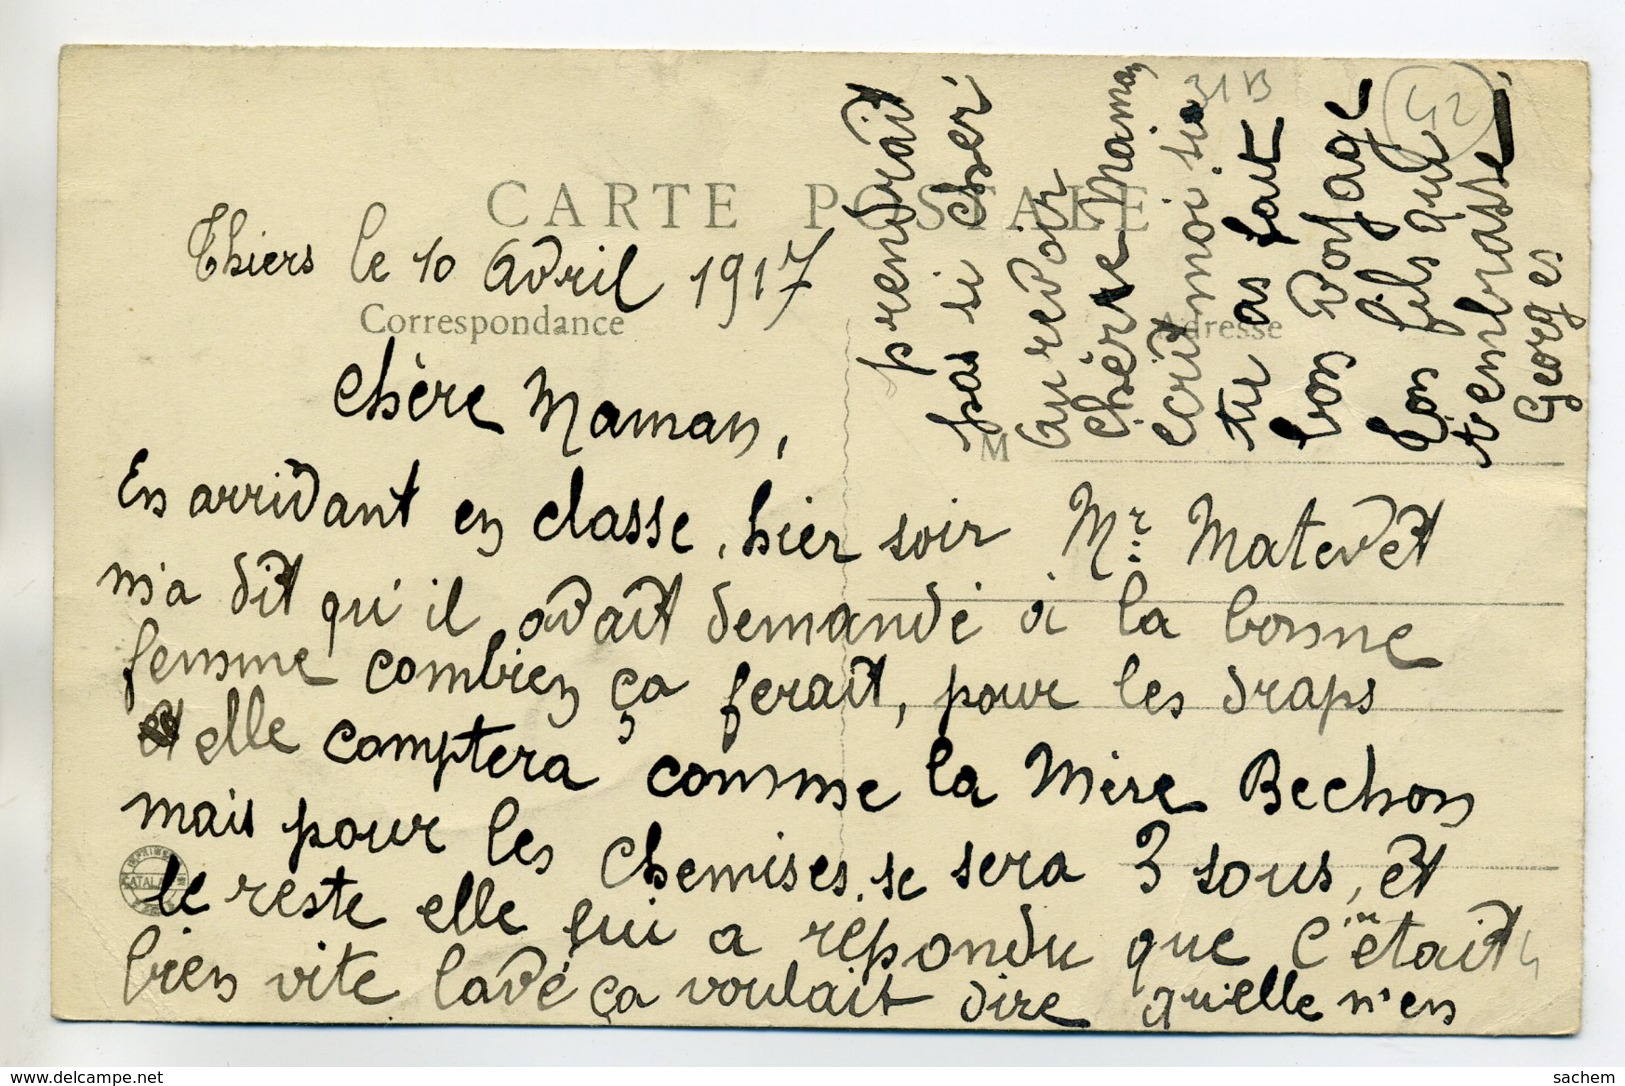 CARTE POSTALE
Thiers le 10 Avril 1917
Correspondance
Adresse
M
Chère Maman,
En arrivant en classe, hier soir Mr. Matevet
m'a dit qu'il avait demandé à la bonne
femme combien ça ferait, pour les draps
elle comptera comme la Mère Bechon
mais pour les chemises, se sera 3 sous, et
le reste elle lui a répondu que c'était
bien vite lavé ça voulait dire qu'elle n'en
prendrait
pas si cher.
Au revoir
chère Maman
écrit moi si
tu as fait
bon voyage
Ton fils qui
t'embrasse
Georges
42
www.delcampe.net
sachem